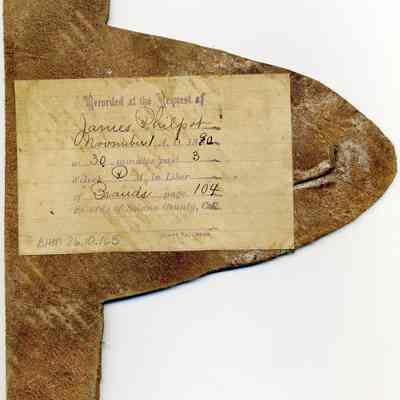 Recorded at the Request of
James Philpot
November 1 A. D. 1880
at 30 minutes past 3
o'clock P. M. in Liber
of Brands page 104
Records of Solano County, Cal.
BHM 76.10.165